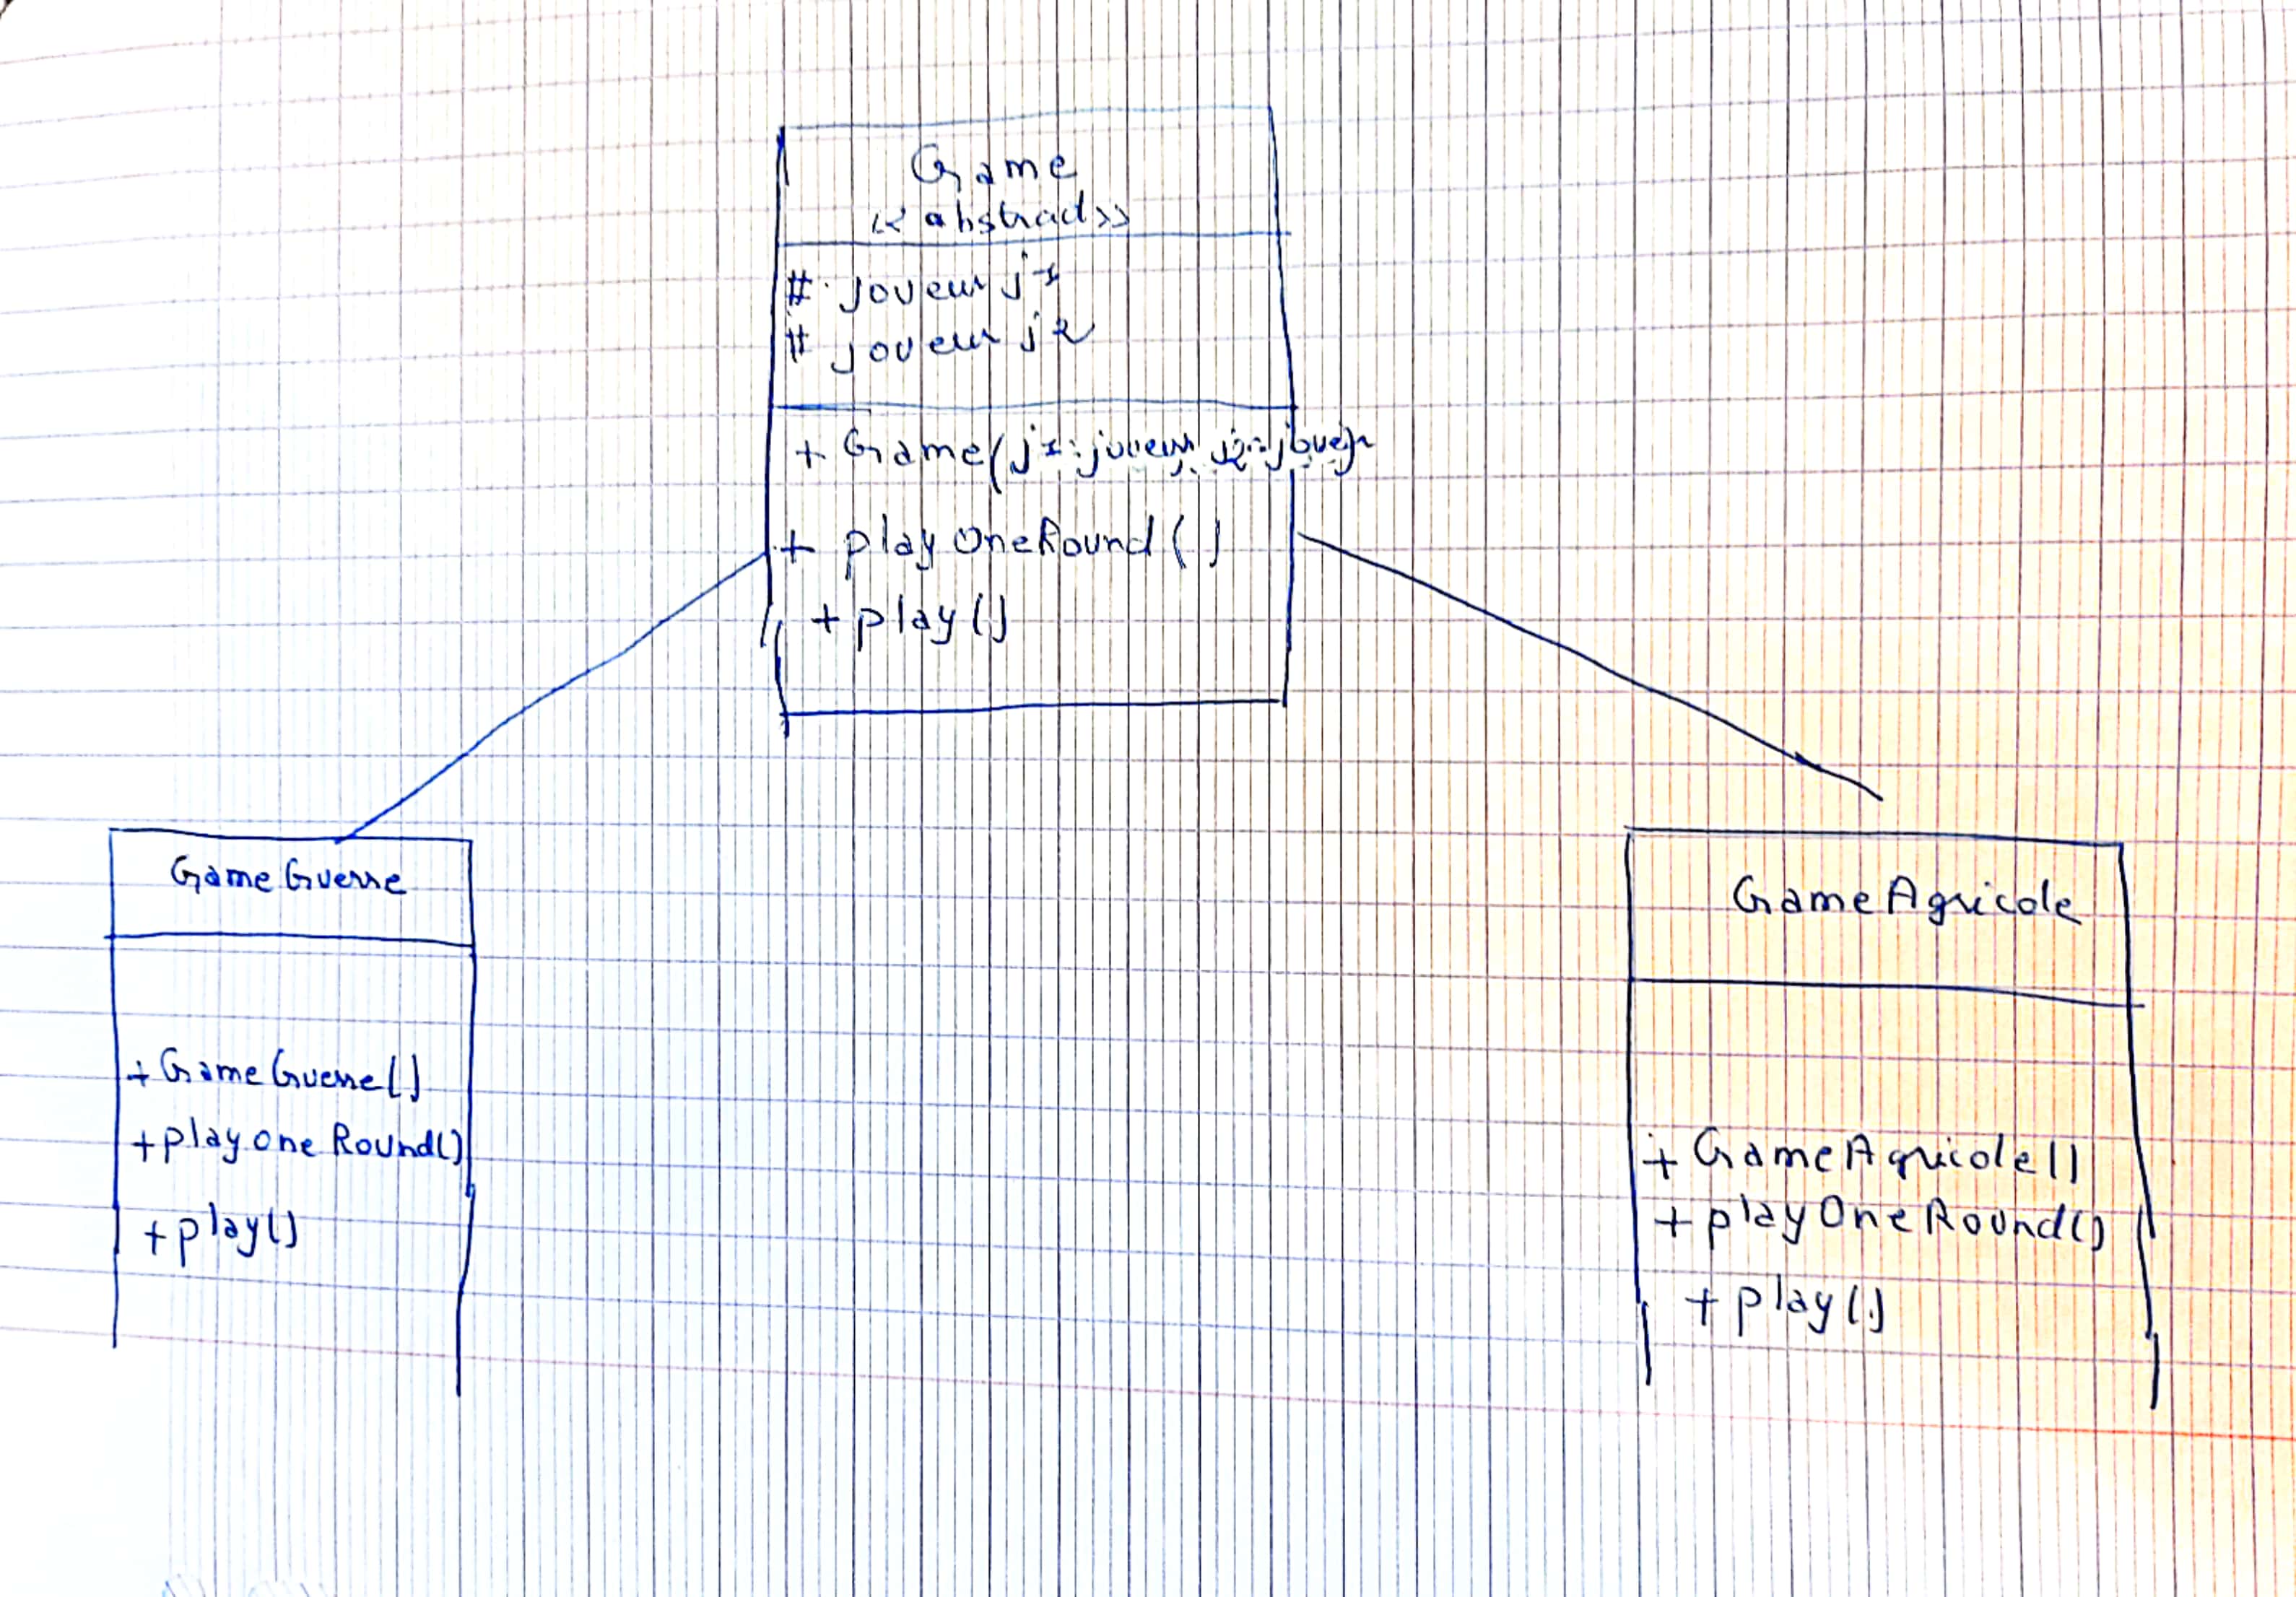 Game
<<abstract>>
# joueur j1
# joueur j2
+ Game(j1:joueur, j2:joueur)
+ playOneRound()
+ play()
GameGuerre
+ GameGuerre()
+ playoneRound()
+ play()
GameAgricole
+ GameAgricole()
+ playOneRound()
+ play()